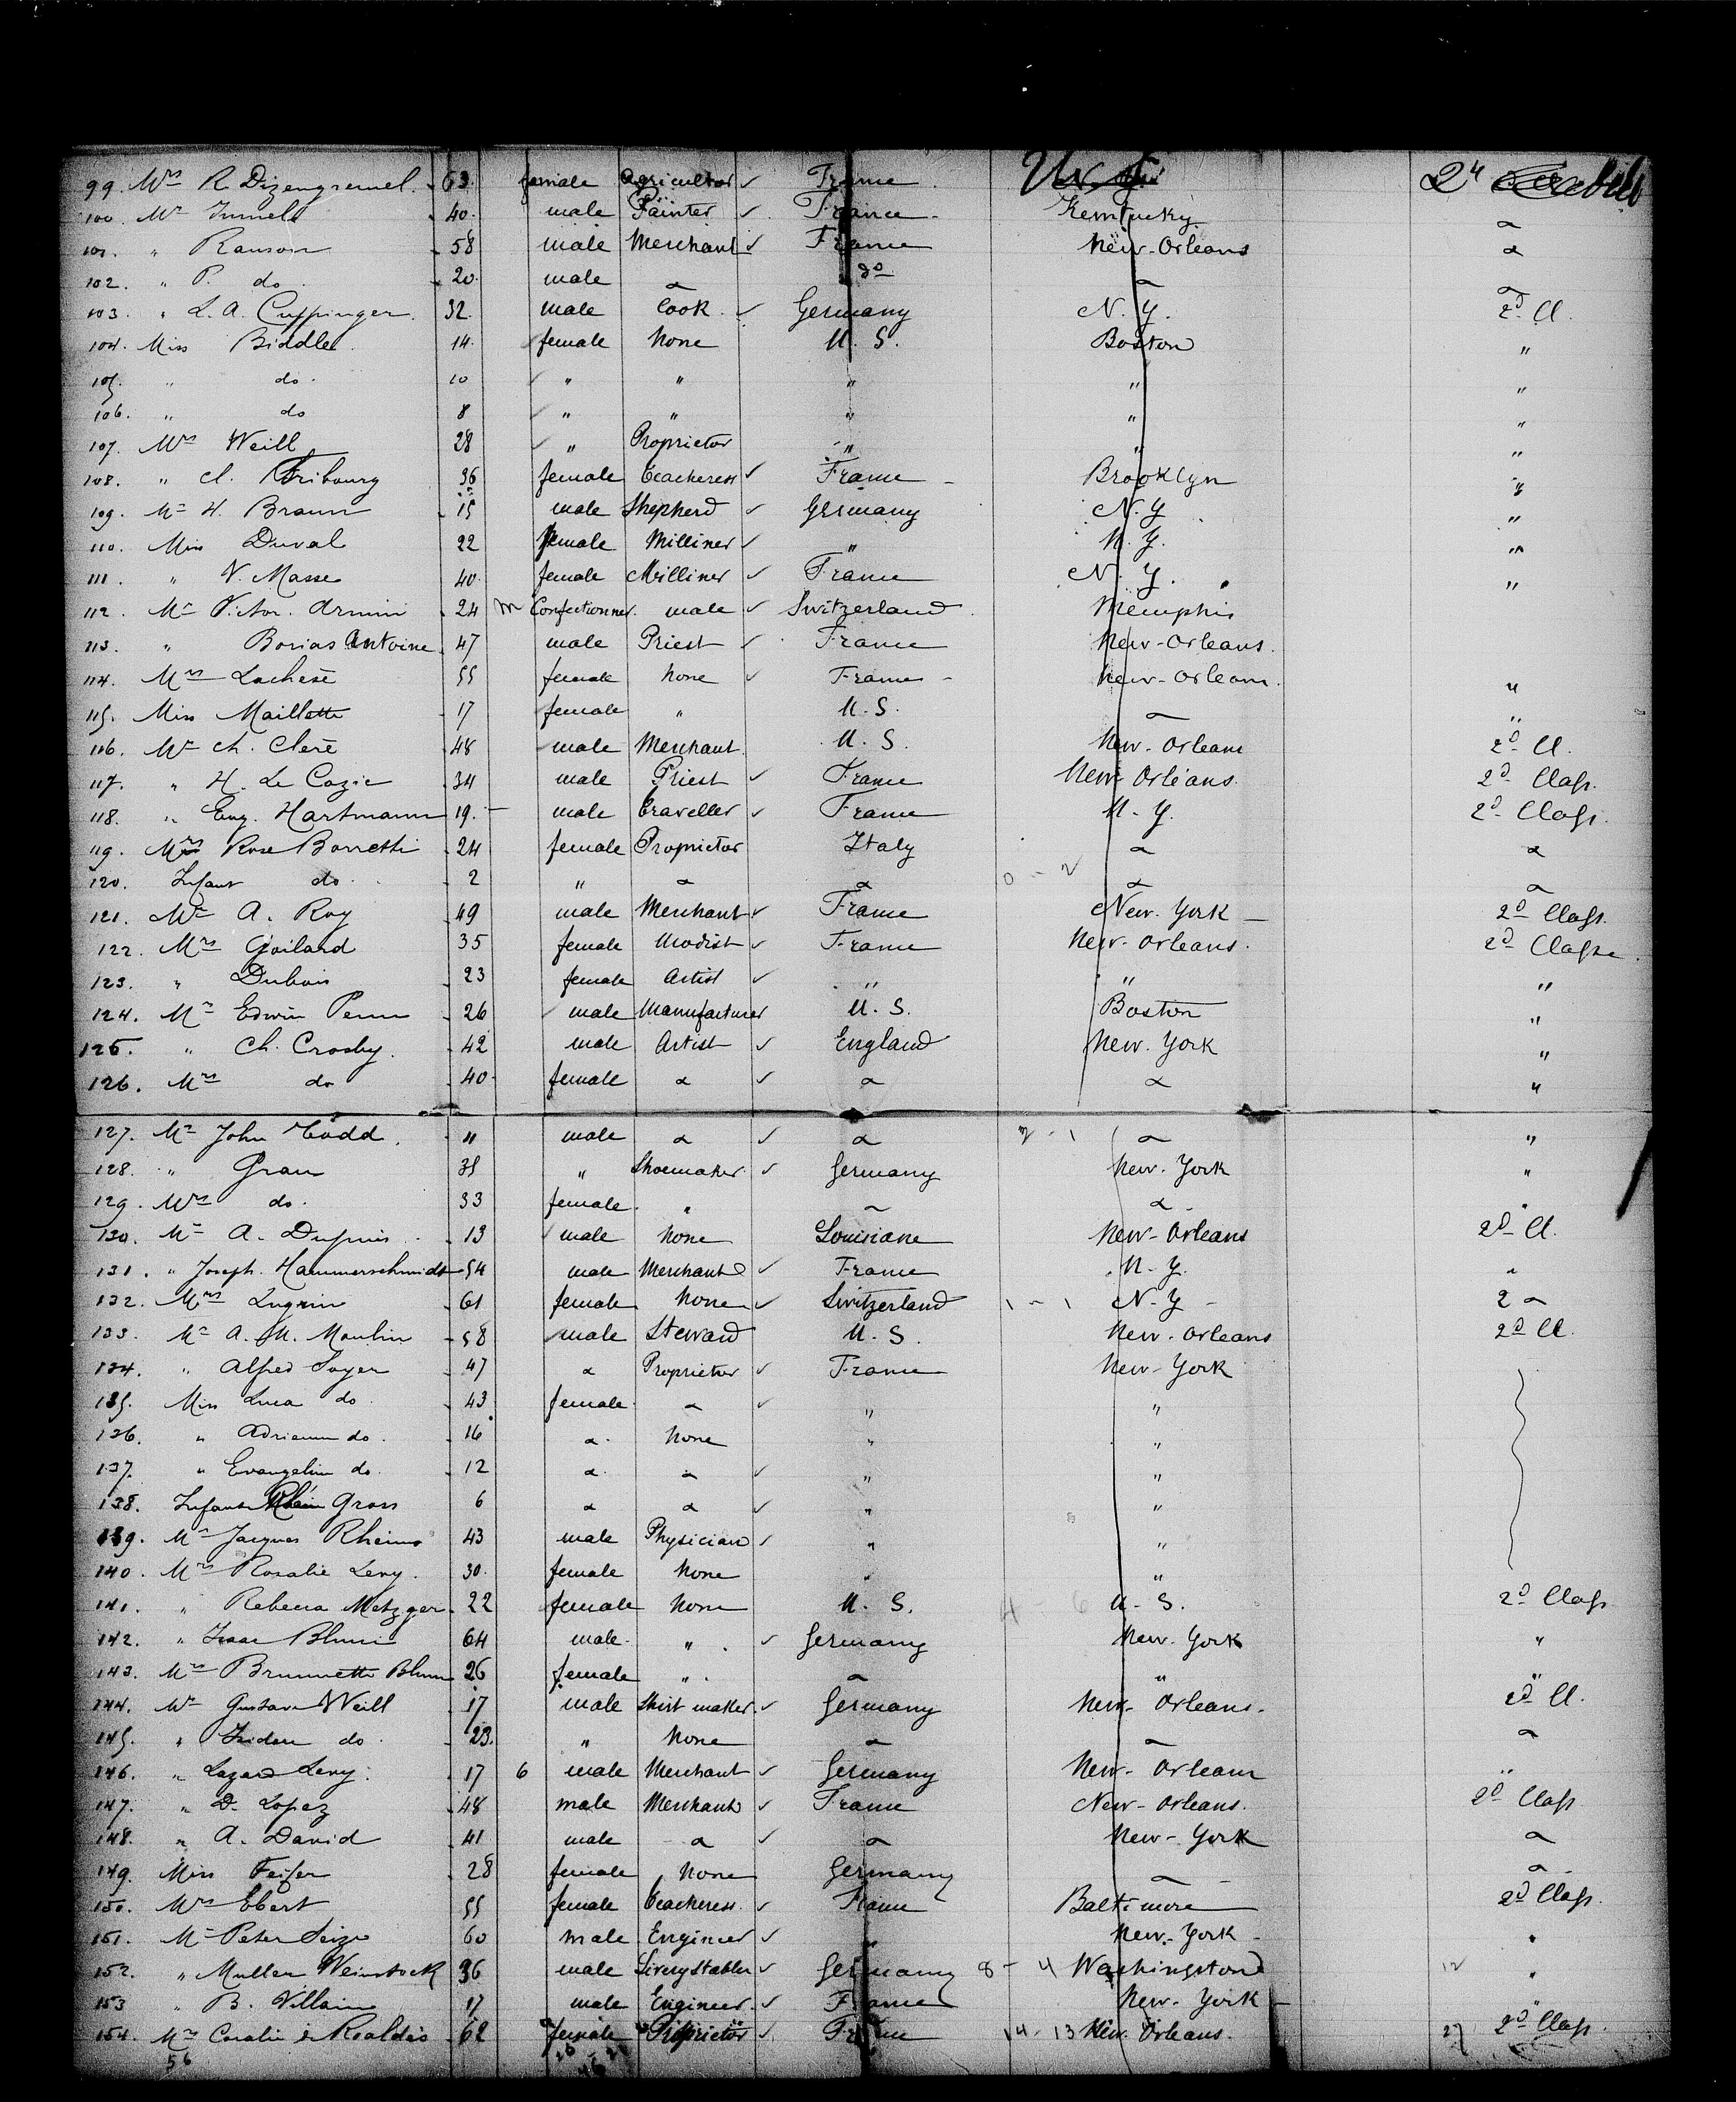 99. Mrs R Dizengremel. 63. female Agricultor ✓ France 2d
100. Mr Jumel 40. male Painter ✓ France Kentucky
101. " Ranson 58 male Merchant ✓ France New-Orleans
102. " P. do 20. male do
103. " L. A. Cuppinger. 32. male Cook. ✓ Germany N. Y. 2d Cl.
104. Miss Biddle 14. female None U. S. Boston "
105. " do. 10 " " " " "
106. " do 8 " " " " "
107. Mrs Weill 28 " Proprietor " " "
108. " Cl. Fribourg 36 female Teacheress ✓ France Brooklyn "
109. Mr H. Braun 15 male Shepherd ✓ Germany N. Y "
110. Miss Duval 22 female Milliner ✓ " N. Y. "
111. " V. Masse 40. female Milliner ✓ France N. Y. "
112. Mr Victor. Armin 24 m Confectionner. male ✓ Switzerland Memphis
113. " Borias Antoine 47 male Priest ✓ France New-Orleans.
114. Mrs Lachese 55 female None ✓ France New-Orleans. "
115. Miss Maillotte 17 female " U. S. "
116. Mr Ch. Clere 48 male Merchant. U. S. New-Orleans 2d Cl.
117. " H. Le Cozic 34 male Priest ✓ France New-Orleans. 2d Class.
118. " Eug. Hartmann 19. male Traveller ✓ France N. Y. 2d Class.
119. Mrs Rose Borretti 24 female Proprietor Italy
120. Infant do. 2 " 0 - 2
121. Mr A. Roy 49 male Merchant ✓ France New. York 2d Class.
122. Mrs Goilard 35 female Modist ✓ France New-Orleans. 2d Classe.
123. " Dubois 23 female Artist ✓ " " "
124. Mr Edwin Penn 26 male Manufacturer U. S. Boston "
125. " Ch. Crosby. 42 male Artist ✓ England New. York "
126. Mrs do 40. female ✓ "
127. Mr John Todd. " male ✓ "
128. " Grau 35 " Shoemaker. ✓ Germany New. York "
129. Mrs do. 33 female. " "
130. Mr A. Dupuis 13 male None Louisiane New-Orleans 2d Cl.
131. " Joseph. Hammerschmidt 54 male Merchant ✓ France N. Y. "
132. Mrs Lugrin 61 female None ✓ Switzerland 1 - 1 N. Y 2
133. Mr A. M. Moulin 58 male Steward U. S. New-Orleans 2d Cl.
134. " Alfred Soyer 47 Proprietor ✓ France New-York
135. Miss Luca do. 43 female. ✓ " "
136. " Adrienne do. 16 None " "
137. " Evangeline do. 12 ✓ " "
138. Infant Gross 6 ✓ " "
139. Mr Jacques Rheims 43 male Physician ✓ " "
140. Mrs Rosalie Levy. 30. female None " "
141. " Rebecca Metzger. 22 female None U. S. 4 - 6 U. S. 2d Class
142. " Isaac Blum 64 male. " ✓ Germany New. York "
143. Mrs Brunnette Blum 26 female " " "
144. Mr Gustave Weill 17 male Shirt maker. ✓ Germany New-Orleans. 2d Cl.
145. " Isidore do. 23. " None
146. " Lazard Levy. 17 6 male Merchant ✓ Germany New-Orleans "
147. " D. Lopez 48 male Merchant ✓ France New-Orleans. 2d Class
148. " A. David 41 male ✓ New-York
149. Miss Feifer 28 female None Germany
150. Mrs Ebert 55 female Teacheress. ✓ France Baltimore 2d Class.
151. Mr Peter 60 male Engineer ✓ " New-York "
152. " Muller Weinstock 36 male Liverystabler ✓ Germany 8 - 4 Washington 12 "
153 " B. Villain 17 male Engineer. ✓ France New-York "
154. Mrs Coralie de Realdes 62 female Proprietor ✓ France 14 - 13 New Orleans. 27 2d Class.
56